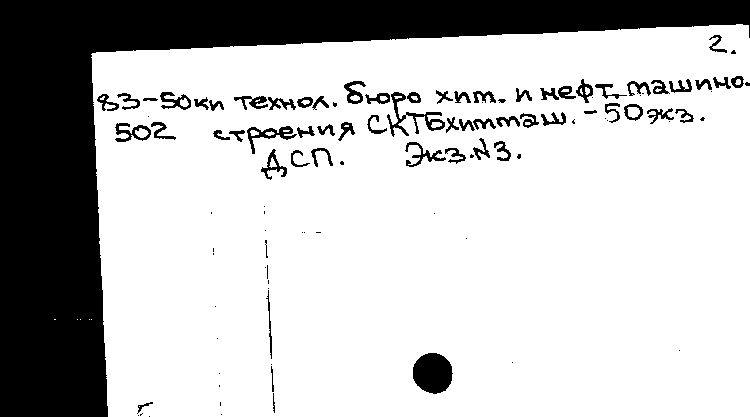 2.
83-50ки технол. бюро хим. и нефт. машино-
502 строения СКТБхиммаш. - 50 экз.
ДСП. Экз. №3.